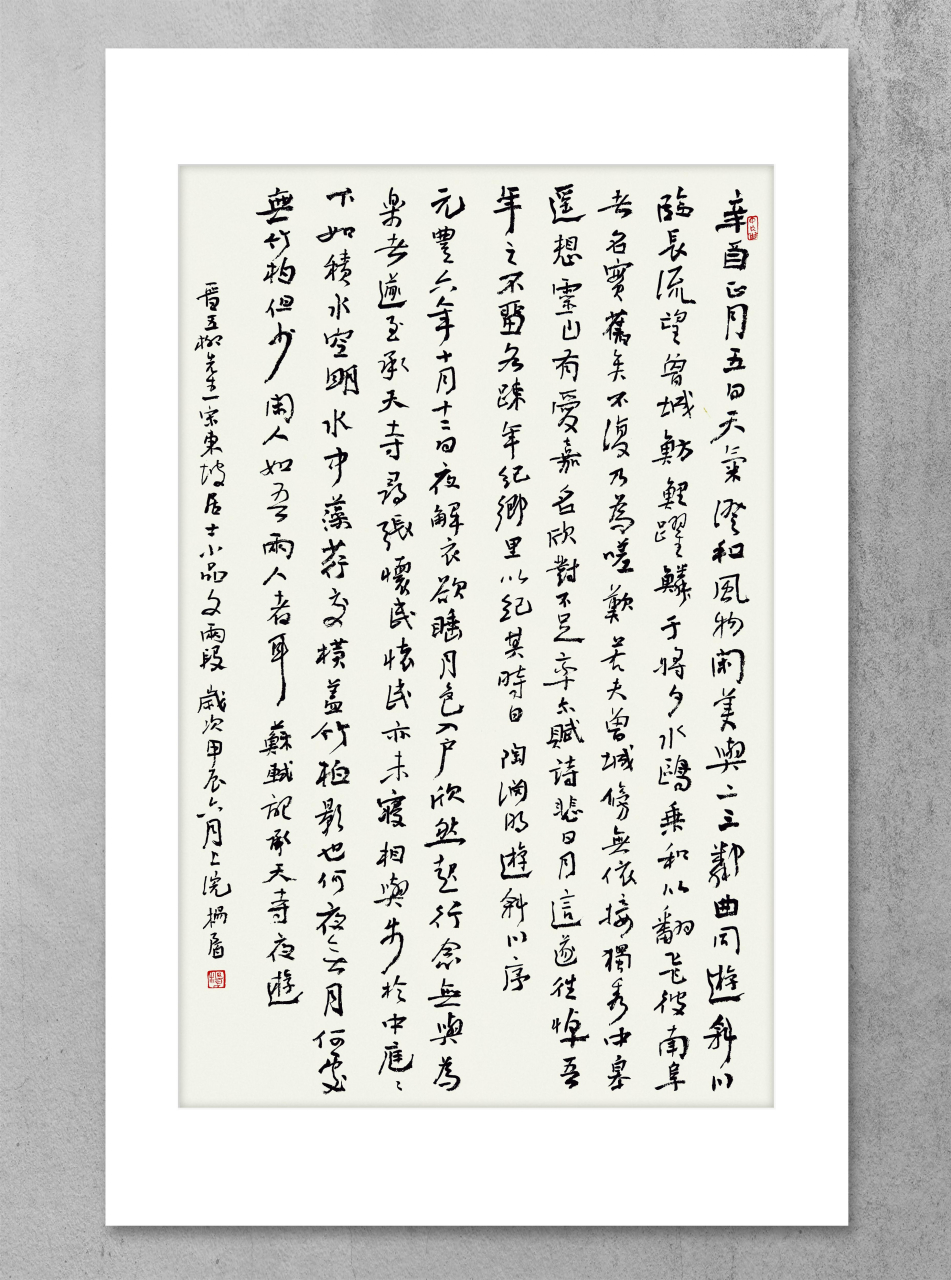 辛酉正月五日天氣澄和風物閑美與二三鄰曲同遊斜川
臨長流望曾城魴鯉躍鱗于將夕水鷗乘和以翻飛彼南阜
者名實舊矣不復乃為嗟歎若夫曾城傍無依接獨秀中皋
遥想靈山有愛嘉名欣對不足率尔賦詩悲日月這遂往悼吾
年之不留各疎年紀鄉里以紀其時日 陶淵明遊斜川序
元豐六年十月十二日夜解衣欲睡月色入户欣然起行念無與為
楽者遂至承天寺尋張懷民懐民亦未寢相與步於中庭〻
下如積水空明水中藻荇交横蓋竹柏影也何夜无月何處
無竹柏但少閑人如吾兩人者耳 蘇軾記承天寺夜遊
晋五柳先生一宋東坡居士小品文兩段 歲次甲辰六月上浣